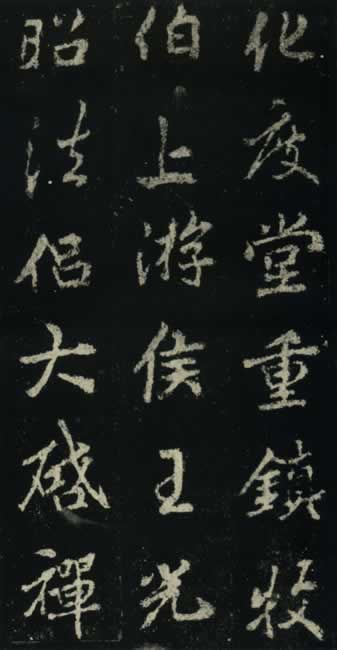 化度堂重鎮牧
伯上游侯王光
昭法侣大啓禪